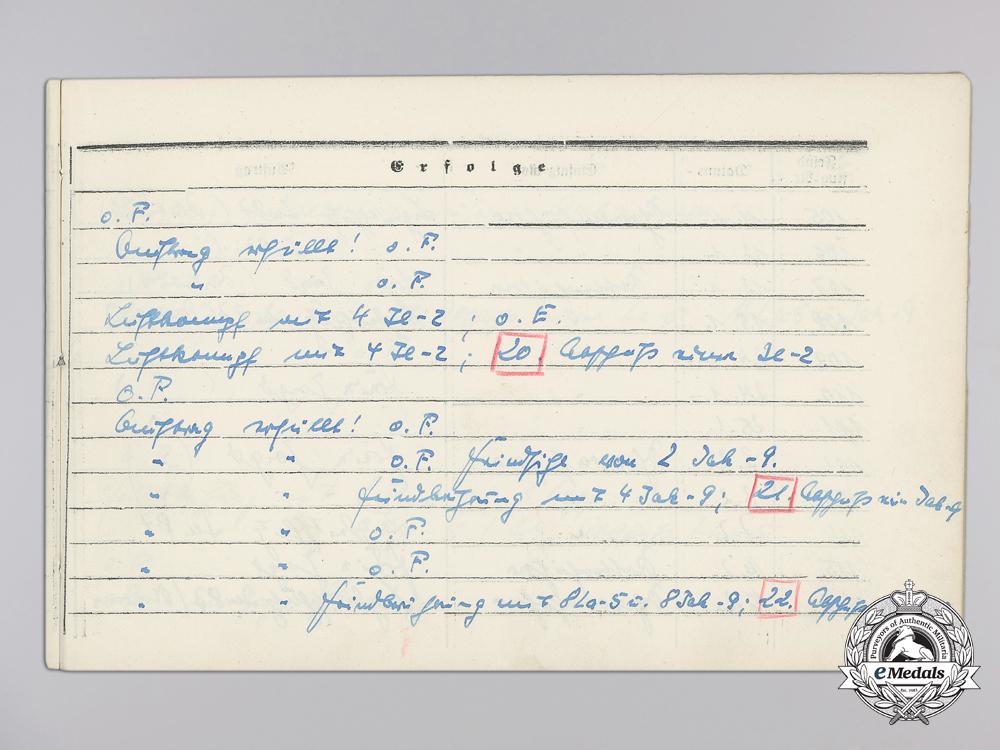 Erfolge
o. F.
Auftrag erfüllt! o. F.
" o. F.
Luftkampf mit 4 Il-2; o. E.
Luftkampf mit 4 Il-2; 20. Abschuß einer Il-2.
o. F.
Auftrag erfüllt! o. F.
" " o. F. von 2 Jak-9.
" " Feindberührung mit 4 Jak-9; 21. Abschuß ein Jak-9
" " o. F.
" " o. F.
" " Feindberührung mit 8 La-5 u. 8 Jak-9; 22. Abschuß
Purveyors of Authentic Militaria
eMedals